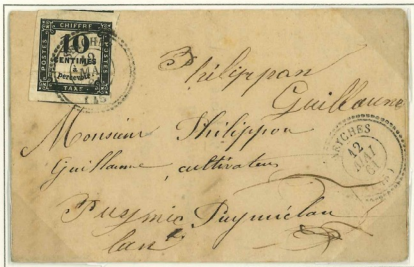 CHIFFRE
POSTES
10
CENTIMES
à percevoir
TAXE
Philippon
Guillaume
Monsieur Philippon
Guillaume, cultivateur
Puymiclan
Cant
SEYCHES
12
MAI